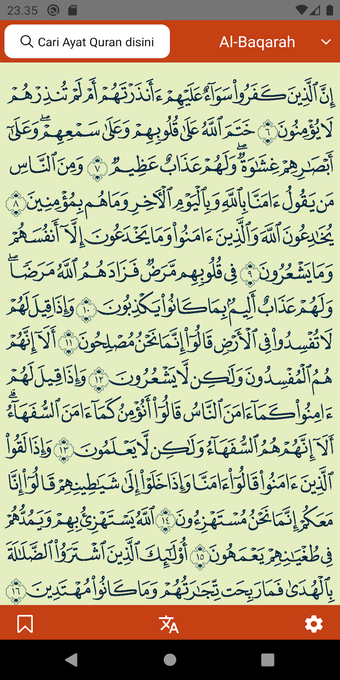 23.35
Cari Ayat Quran disini
Al-Baqarah
إِنَّ ٱلَّذِينَ كَفَرُواْ سَوَآءٌ عَلَيْهِمْ ءَأَنذَرْتَهُمْ أَمْ لَمْ تُنذِرْهُمْ
لَا يُؤْمِنُونَ ٦ خَتَمَ ٱللَّهُ عَلَىٰ قُلُوبِهِمْ وَعَلَىٰ سَمْعِهِمْۖ وَعَلَىٰٓ
أَبْصَٰرِهِمْ غِشَٰوَةٌۖ وَلَهُمْ عَذَابٌ عَظِيمٌ ٧ وَمِنَ ٱلنَّاسِ
مَن يَقُولُ ءَامَنَّا بِٱللَّهِ وَبِٱلْيَوْمِ ٱلْأٓخِرِ وَمَا هُم بِمُؤْمِنِينَ ٨
يُخَٰدِعُونَ ٱللَّهَ وَٱلَّذِينَ ءَامَنُواْ وَمَا يَخْدَعُونَ إِلَّآ أَنفُسَهُمْ
وَمَا يَشْعُرُونَ ٩ فِي قُلُوبِهِم مَّرَضٌ فَزَادَهُمُ ٱللَّهُ مَرَضًاۖ
وَلَهُمْ عَذَابٌ أَلِيمٌۢ بِمَا كَانُواْ يَكْذِبُونَ ١٠ وَإِذَا قِيلَ لَهُمْ
لَا تُفْسِدُواْ فِي ٱلْأَرْضِ قَالُوٓاْ إِنَّمَا نَحْنُ مُصْلِحُونَ ١١ أَلَآ إِنَّهُمْ
هُمُ ٱلْمُفْسِدُونَ وَلَٰكِن لَّا يَشْعُرُونَ ١٢ وَإِذَا قِيلَ لَهُمْ
ءَامِنُواْ كَمَآ ءَامَنَ ٱلنَّاسُ قَالُوٓاْ أَنُؤْمِنُ كَمَآ ءَامَنَ ٱلسُّفَهَآءُۗ
أَلَآ إِنَّهُمْ هُمُ ٱلسُّفَهَآءُ وَلَٰكِن لَّا يَعْلَمُونَ ١٣ وَإِذَا لَقُواْ
ٱلَّذِينَ ءَامَنُواْ قَالُوٓاْ ءَامَنَّا وَإِذَا خَلَوْاْ إِلَىٰ شَيَٰطِينِهِمْ قَالُوٓاْ إِنَّا
مَعَكُمْ إِنَّمَا نَحْنُ مُسْتَهْزِءُونَ ١٤ ٱللَّهُ يَسْتَهْزِئُ بِهِمْ وَيَمُدُّهُمْ
فِي طُغْيَٰنِهِمْ يَعْمَهُونَ ١٥ أُوْلَٰٓئِكَ ٱلَّذِينَ ٱشْتَرَوُاْ ٱلضَّلَٰلَةَ
بِٱلْهُدَىٰ فَمَا رَبِحَت تِّجَٰرَتُهُمْ وَمَا كَانُواْ مُهْتَدِينَ ١٦